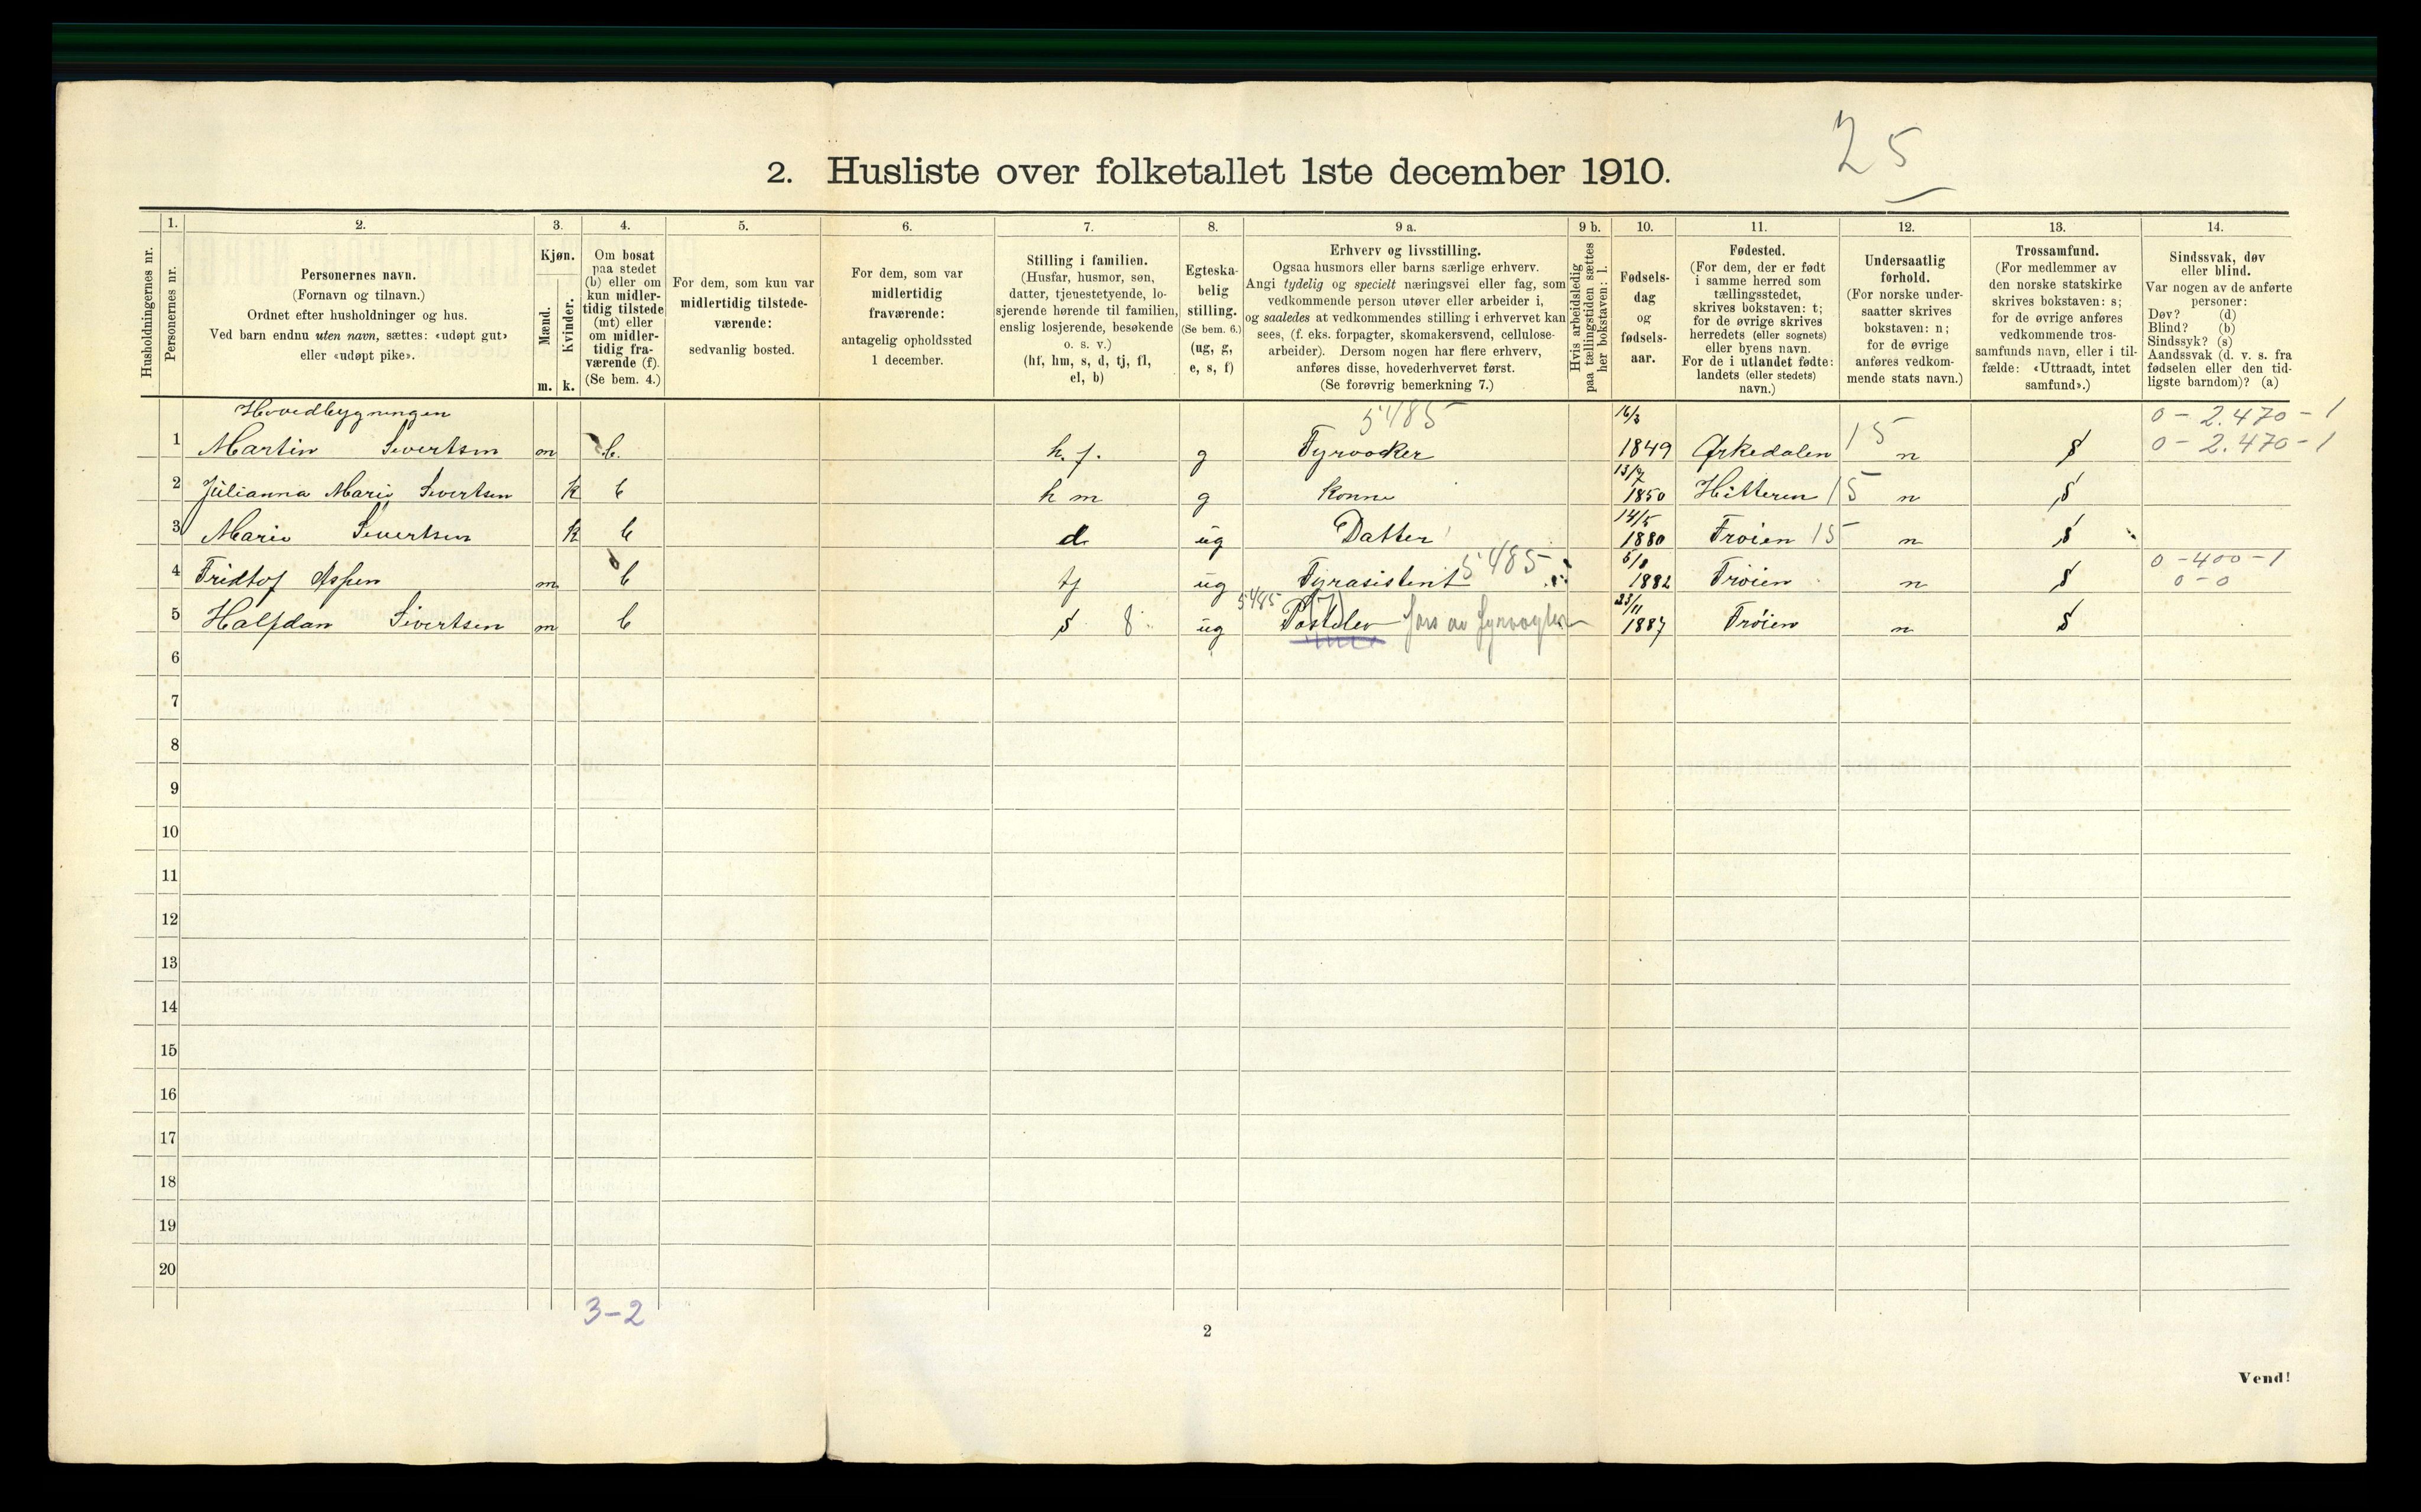 25
2. Husliste over folketallet 1ste december 1910.
Husholdningernes nr.
1.
Personernes nr.
2.
Personernes navn.
(Fornavn og tilnavn.)
Ordnet efter husholdninger og hus.
Ved barn endnu uten navn, sættes: «udøpt gut»
eller «udøpt pike».
3.
Kjøn.
Mænd.
Kvinder.
m. k.
4.
Om bosat
paa stedet
(b) eller om
kun midler-
tidig tilstede
(mt) eller
om midler-
tidig fra-
værende (f).
(Se bem. 4.)
5.
For dem, som kun var
midlertidig tilstede-
værende:
sedvanlig bosted.
6.
For dem, som var
midlertidig
fraværende:
antagelig opholdssted
1 december.
7.
Stilling i familien.
(Husfar, husmor, søn,
datter, tjenestetyende, lo-
sjerende hørende til familien,
enslig losjerende, besøkende
o. s. v.)
(hf, hm, s, d, tj, fl,
el, b)
8.
Egteska-
belig
stilling.
(Se bem. 6.)
(ug, g,
e, s, f)
9 a.
Erhverv og livsstilling.
Ogsaa husmors eller barns særlige erhverv.
Angi tydelig og specielt næringsvei eller fag, som
vedkommende person utøver eller arbeider i,
og saaledes at vedkommendes stilling i erhvervet kan
sees, (f. eks. forpagter, skomakersvend, cellulose-
arbeider). Dersom nogen har flere erhverv,
anføres disse, hovederhvervet først.
(Se forøvrig bemerkning 7.)
9 b.
Hvis arbeidsledig
paa tællingstiden sættes
her bokstaven: l.
10.
Fødsels-
dag
og
fødsels-
aar.
11.
Fødested.
(For dem, der er født
i samme herred som
tællingsstedet,
skrives bokstaven: t;
for de øvrige skrives
herredets (eller sognets)
eller byens navn.
For de i utlandet fødte:
landets (eller stedets)
navn.)
12.
Undersaatlig
forhold.
(For norske under-
saatter skrives
bokstaven: n;
for de øvrige
anføres vedkom-
mende stats navn.)
13.
Trossamfund.
(For medlemmer av
den norske statskirke
skrives bokstaven: s;
for de øvrige anføres
vedkommende tros-
samfunds navn, eller i til-
fælde: «Uttraadt, intet
samfund».)
14.
Sindssvak, døv
eller blind.
Var nogen av de anførte
personer:
Døv? (d)
Blind? (b)
Sindssyk? (s)
Aandssvak (d. v. s. fra
fødselen eller den tid-
ligste barndom)? (a)
Hovedbygningen 5485 16/3 0 - 2.470 - 1
1 Martin Sivertsen m b. h. f. g Fyrvokter 1849 Ørkedalen 15 n s 0 - 2.470 - 1
2 Julianna Marie Sivertsen k b h m g konne 13/7 1850 Hitteren 15 n s
3 Marie Sivertsen k b d ug Datter 14/5 1880 Frøien 15 n s
4 Fridtof Aspen m b tj ug Fyrasistent 5485 1882 Frøien n s 0 - 400 - 1
0 - 0
5 Halfdan Sivertsen m b s 8 ug 5485 Postelev 23/11 1887 Frøien n s
6
7
8
9
10
11
12
13
14
15
16
17
18
19
20
3-2
2
Vend!